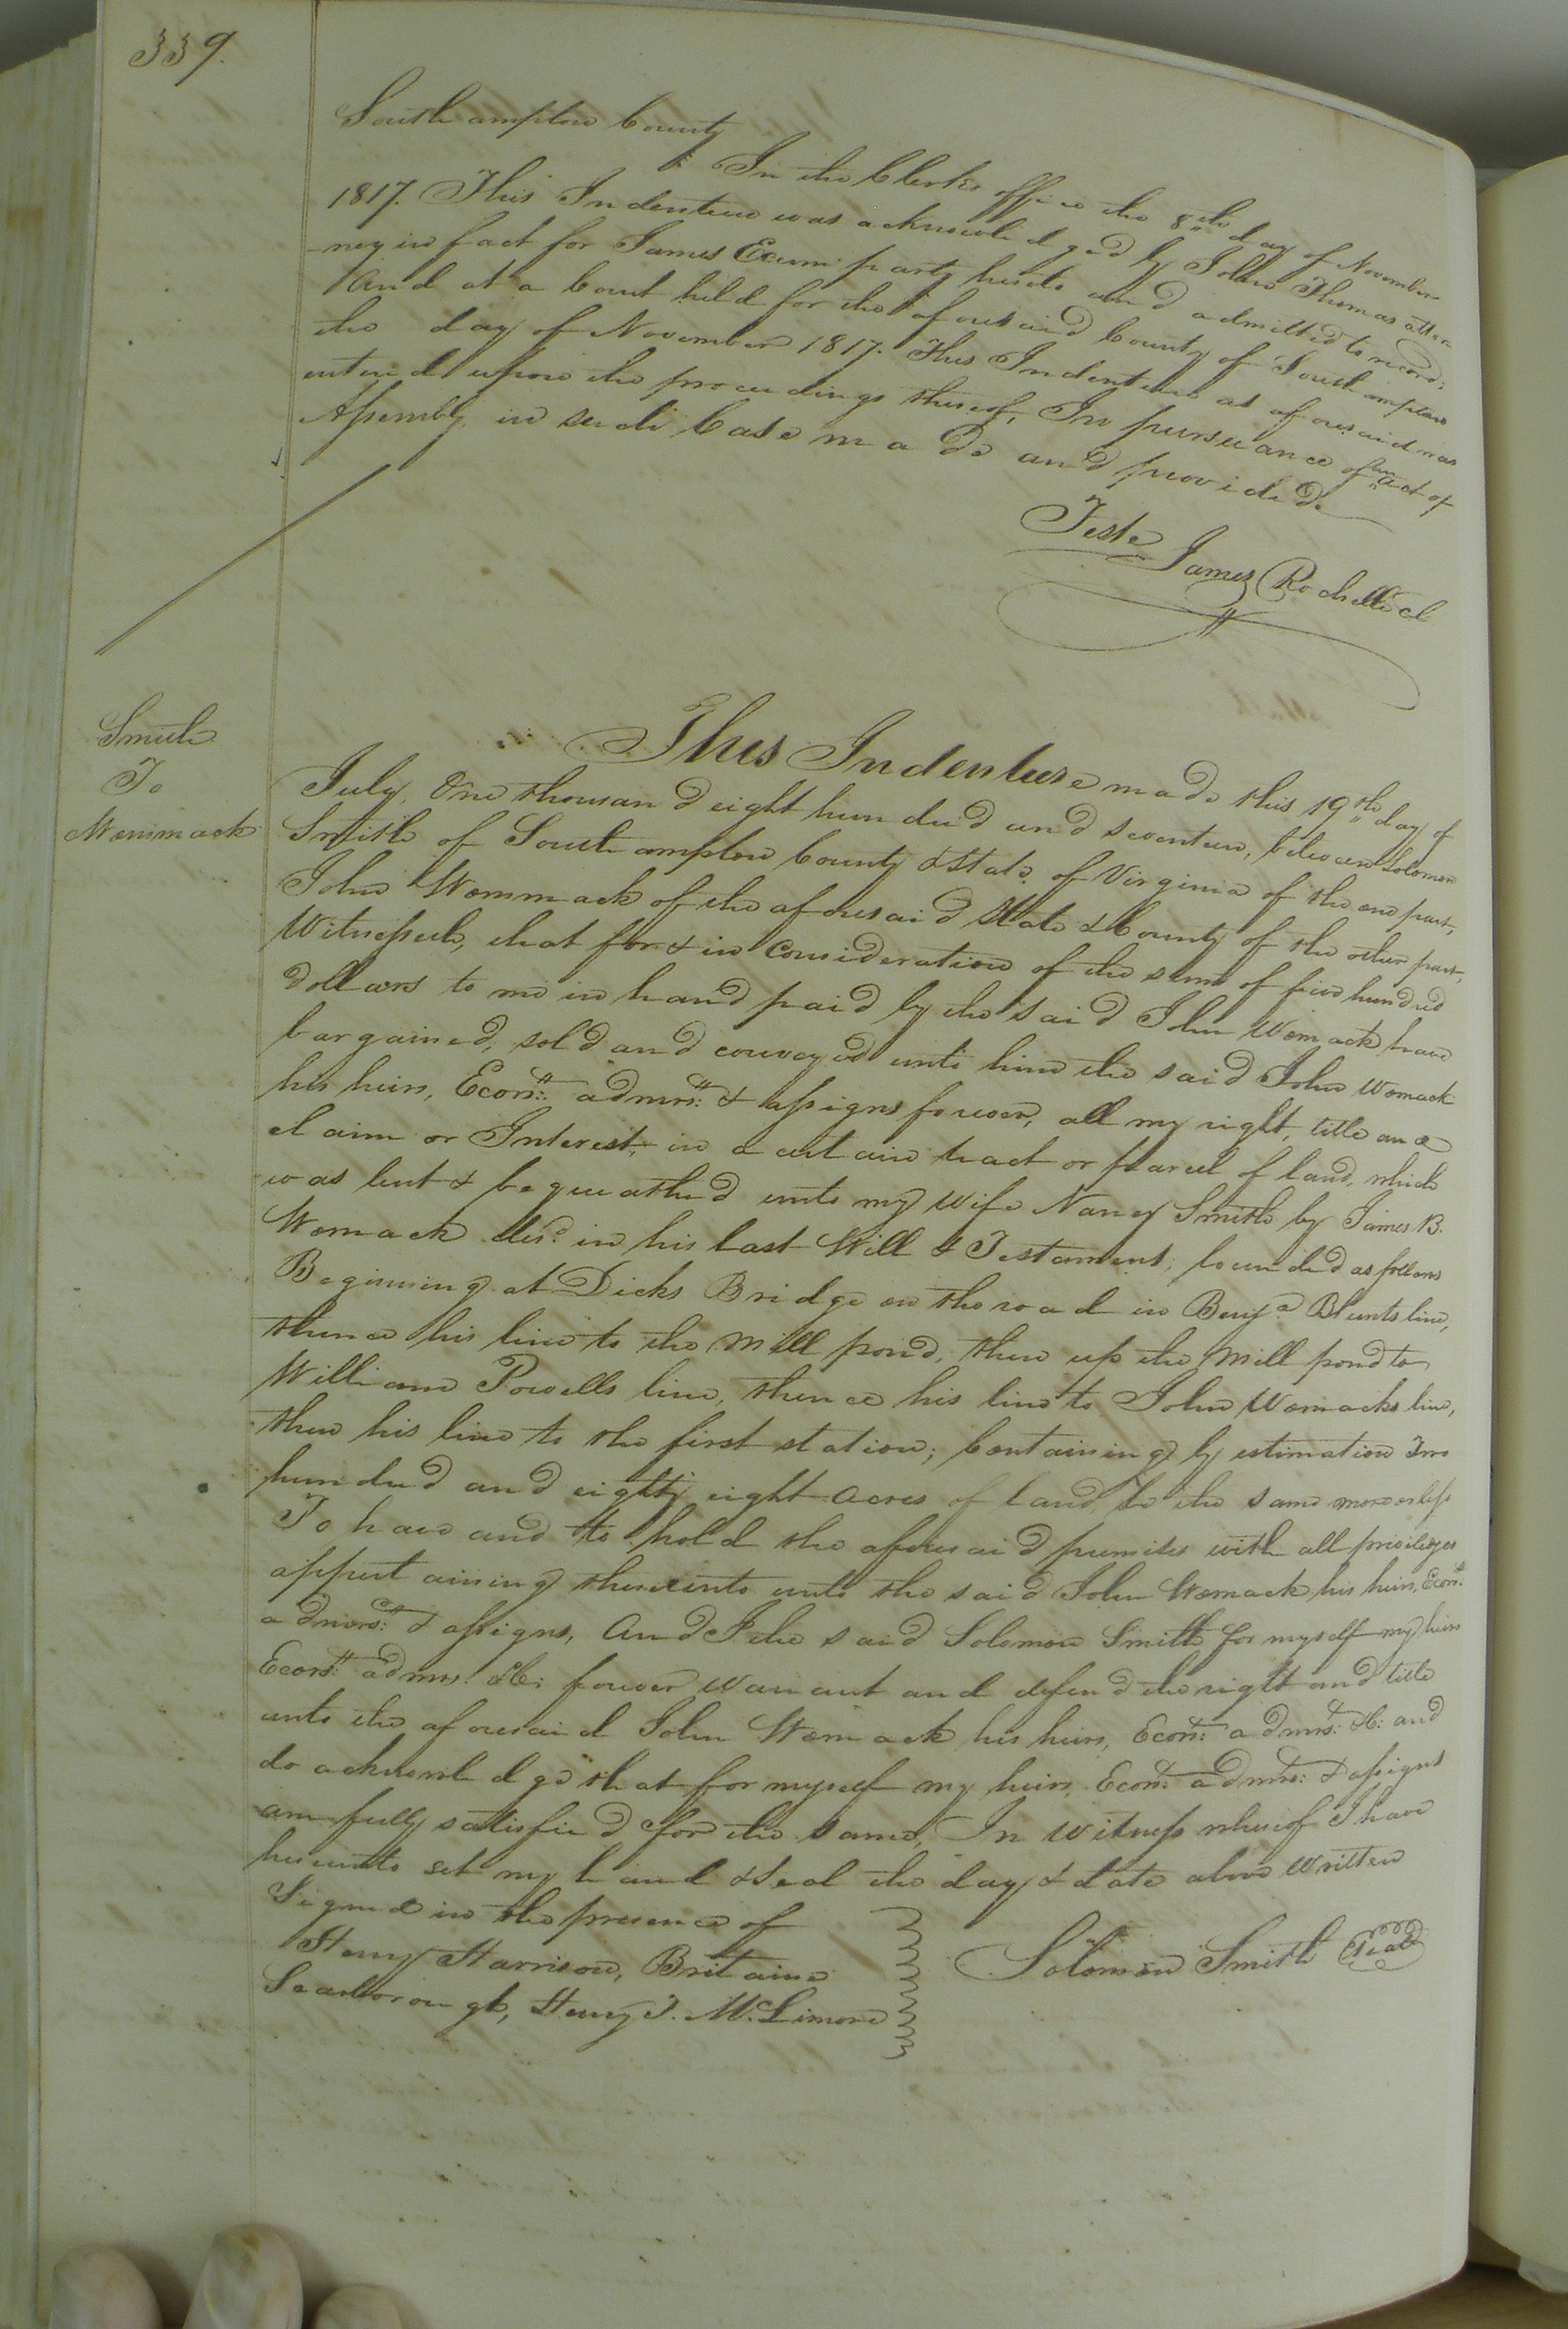 339.
Southampton County
In the Clerks office the 8th day of November
1817. This Indenture was acknowledged by John Thomas attor
ney in fact for James Exum party hereto and admitted to record,
And at a Court held for the aforesaid County of Southampton
the day of November 1817. This Indenture as aforesaid was
entered upon the proceedings thereof, In pursuance of an act of
Assembly in such Case made and provided.
Teste
James Rochelle cl
Smith
To
Wommack
This Indenture made this 19th day of
July, One thousand eight hundred and seventeen, between Solomon
Smith of Southampton County & State of Virginia of the one part,
John Wommack of the aforesaid State & County of the other part,
Witnesseth, that for & in Consideration of the sum of five hundred
dollars to me in hand paid by the said John Womack have
bargained, sold and conveyed unto him the said John Womack
his heirs, Ecors: admrs: & assigns forever, all my right, title and
claim or Interest, in a certain tract or parcel of land, which
was lent & bequeathed unto my Wife Nancy Smith by James B.
Womack decd. in his last Will & Testament; bounded as follows
Beginning at Dicks Bridge on the road in Benja. Blunts line,
thence his line to the Mill pond, then up the Mill pond to
William Powells line, thence his line to John Womacks line,
then his line to the first station; Containing by estimation Two
hundred and eighty eight acres of land, be the same more or less
To have and to hold the aforesaid premises with all privileges
appertaining thereunto unto the said John Womack his heirs, Ecors:
admors: & assigns, And I the said Solomon Smith for myself my heirs
Ecors: admrs: &C: forever warrant and defend the right and title
unto the aforesaid John Womack his heirs, Ecors: admrs: &C: and
do acknowledge that for myself my heirs, Ecors: admrs: & assigns
am fully satisfied for the same, In witness whereof I have
hereunto set my hand & Seal the day & date above written
Signed in the presence of
Henry Harrison, Britain
Scarborough, Henry J. McLimore
Solomon Smith Seal